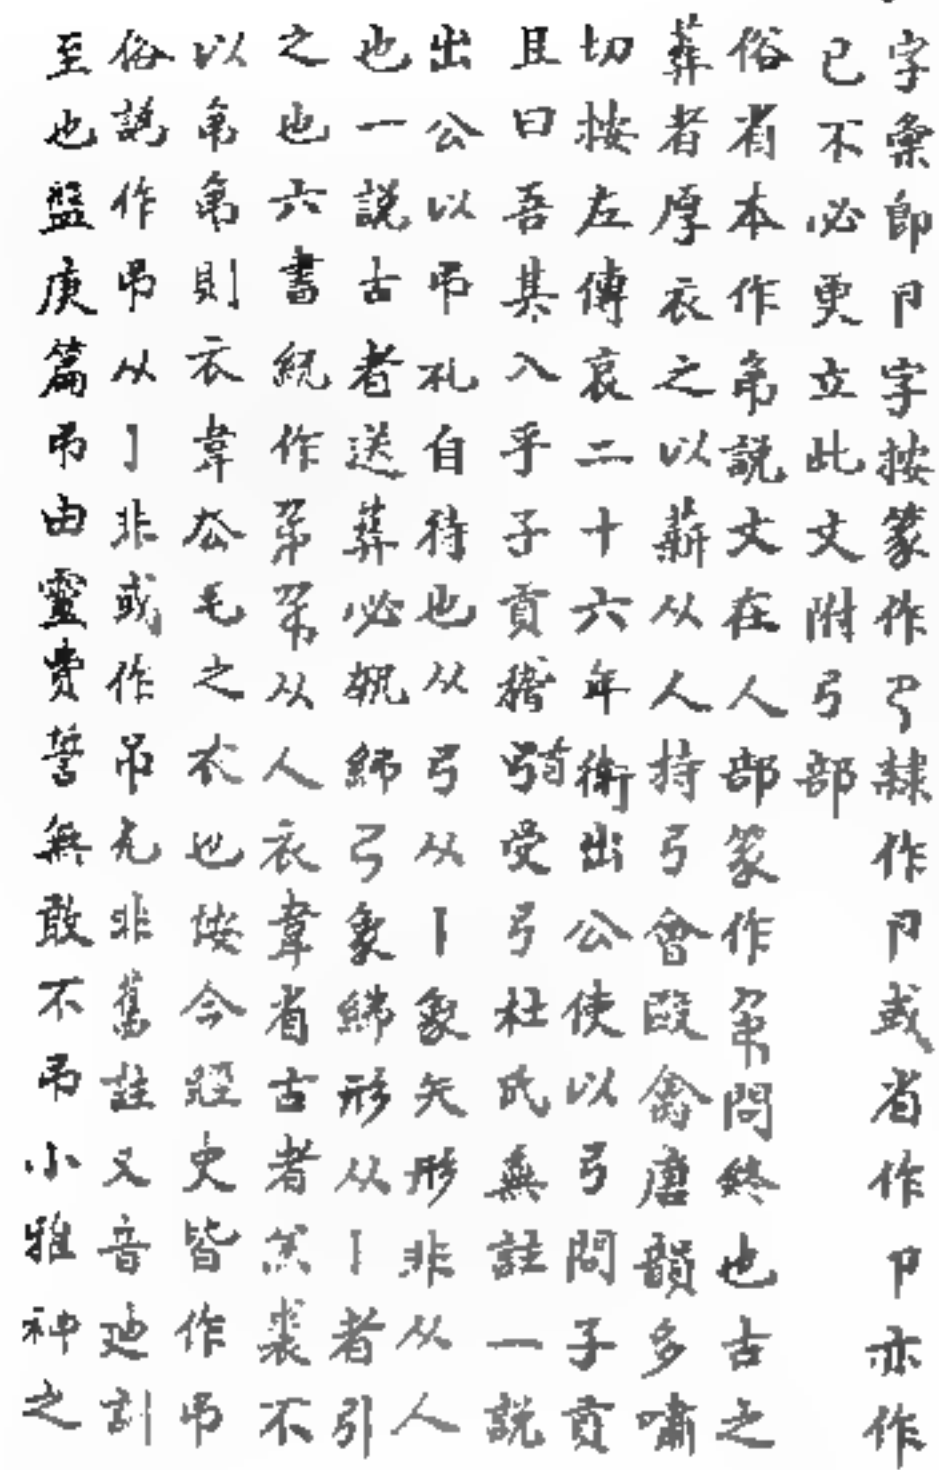 字彙即卩字按篆作𢎘隸作卩或省作卩亦作
已不必更立此文附弓部
俗省本作𢎣說文在人部篆作弔問終也古之
葬者厚衣之以薪从人持弓會敺禽唐韻多嘯
切按左傳哀二十六年衛出公使以弓問子貢
且曰吾其入乎子貢稽首受弓杜氏無註一說
出公以弔礼自待也从弓从丨象矢形非从人
也一說古者送葬必執紼弓象紼形从丨者引
之也六書統作 从人衣韋省古者羔裘不
以弔 則衣韋 毛之衣也按今經史皆作弔
俗譌作吊从亅非或作吊尤非舊註又音廸訓
至也盤庚篇弔由靈費誓無敢不弔小雅神之